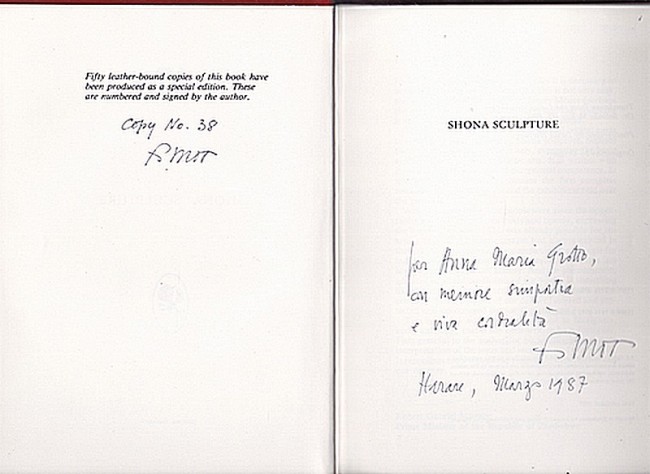 Fifty leather-bound copies of this book have
been produced as a special edition. These
are numbered and signed by the author.
Copy No. 38
SHONA SCULPTURE
per Anna Maria Grotto,
con memore simpatia
e viva cordialità
Harare, Marzo 1987